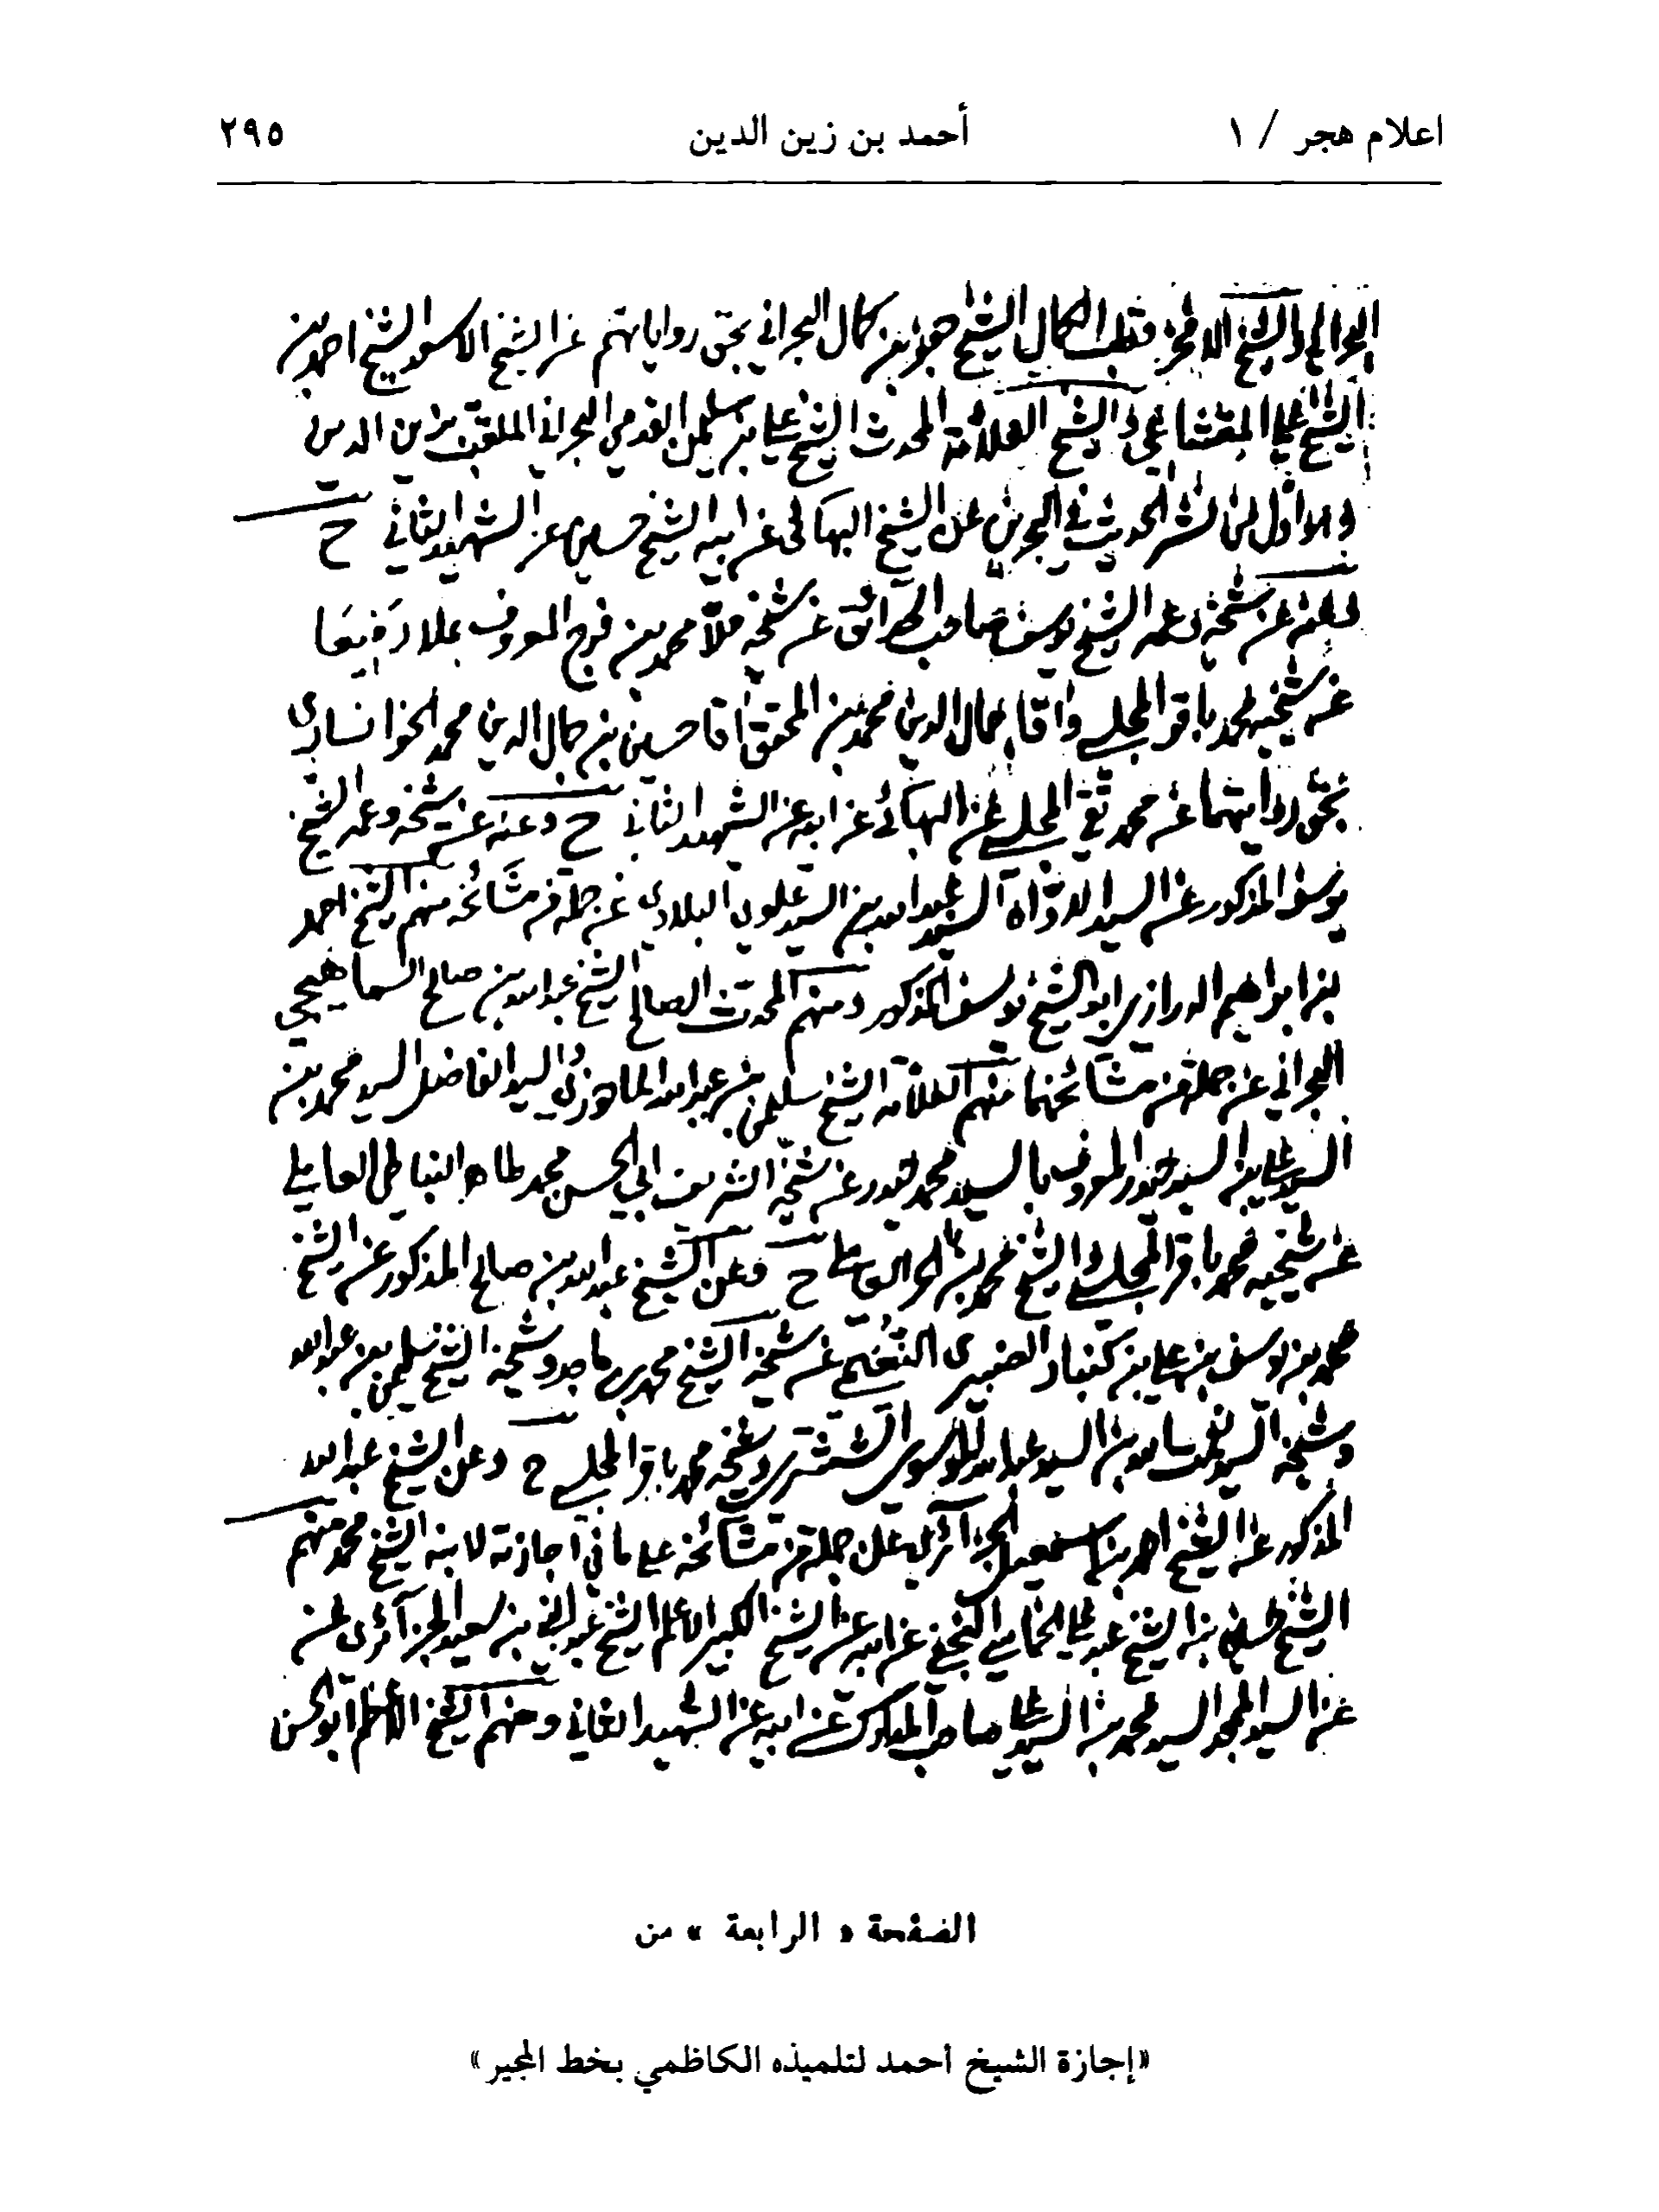 اعلام هجر / ١ أحمد بن زين الدين ٢٩٥
الشيخ جعفر بن كمال البحراني بحق رواياتهم عن الشيخ الشيخ احمد بن
الشيخ علي المقشاعي والشيخ العلامة المحدث الشيخ علي بن سليمن القدمي البحراني الملقب بزين الدين
وهو اول من نشر الحديث في البحرين عن الشيخ البهائي عن ابيه الشيخ حسين عن الشهيد الثاني ح
وعنه عن شيخه وعمه الشيخ يوسف صاحب الحدائق عن شيخه ملا محمد بن فرج المعروف بملا رفيعا
عن شيخيه محمد باقر المجلسي واقا جمال الدين محمد بن المحقق اقا حسين بن جمال الدين محمد الخوانساري
بحق روايتهما عن محمد تقي المجلسي عن البهائي عن ابيه عن الشهيد الثاني ح وعنه عن شيخه وعمه الشيخ
يوسف المذكور عن السيد الاواه السيد عبد الله بن السيد علوي البلادي عن جملة من مشائخه منهم الشيخ احمد
بن ابراهيم الدرازي ابو الشيخ يوسف المذكور ومنهم المحدث الصالح الشيخ عبد الله بن صالح السماهيجي
البحراني عن جملة من مشائخهما منهم العلامة الشيخ سليمن بن عبد الله الماحوزي والسيد الفاضل السيد محمد بن
السيد علي بن السيد حيدر المعروف بالسيد محمد حيدر عن شيخه الشريف ابي الحسن محمد طاهر النباطي العاملي
عن شيخيه محمد باقر المجلسي والشيخ محمد بن الحر العاملي ح وعن الشيخ عبد الله بن صالح المذكور عن الشيخ
محمد بن يوسف بن علي بن كنبار الضبيري النعيمي عن شيخه الشيخ محمد بن ماجد وشيخه الشيخ سليمن بن عبد الله
وشيخه السيد نعمت الله بن السيد عبد الله الموسوي الششتري وشيخه محمد باقر المجلسي ح وعن الشيخ عبد الله
المذكور عن الشيخ احمد بن اسمعيل الجزائري عن جملة من مشائخه على ما في اجازته لابنه الشيخ محمد منهم
الشيخ حسين بن الشيخ عبد علي الخمايسي النجفي عن ابيه عن الشيخ الكبير الاعلم الشيخ عبد النبي بن سعد الجزائري
عن السيد الامجد السيد محمد بن السيد علي صاحب المدارك عن ابيه عن الشهيد الثاني ومنهم الشيخ الاعظم ابو الحسن
الصفحة « الرابعة » من
«إجازة الشيخ أحمد لتلميذه الكاظمي بخط المجيز»